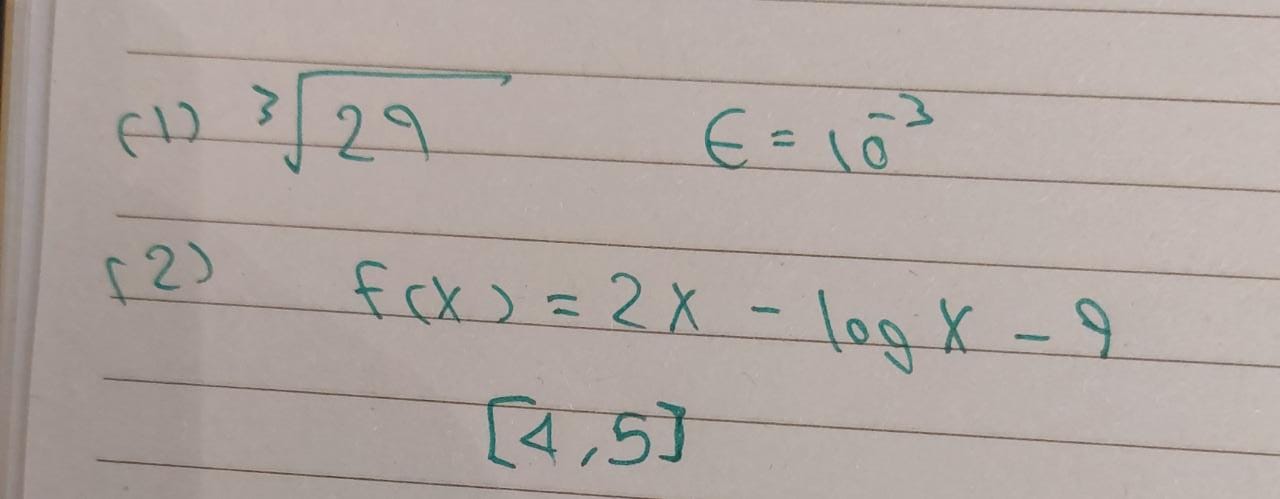 (1) ∛29 ϵ = 10⁻³
(2) f(x) = 2x - log x - 9
[4,5]